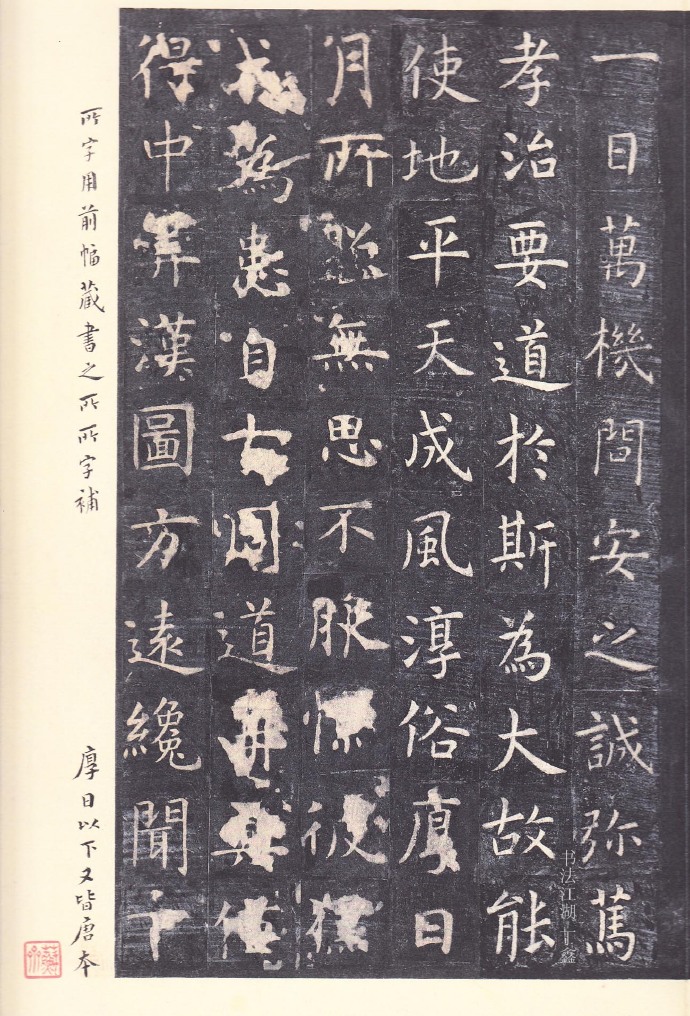 一日萬機問安之誠弥篤
孝治要道於斯為大故能
使地平天成風淳俗厚日
月所照無思不服憬彼獯
戎為患自古周道再興僅
得中筭漢圖方遠纔聞下
所字用前幅藏書之所所字補
厚日以下又皆唐本
书法江湖